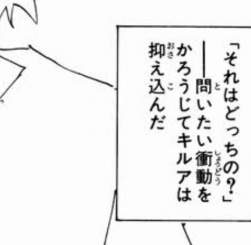 「それはどっちの？」
――問いたい衝動を
かろうじてキルアは
抑え込んだ